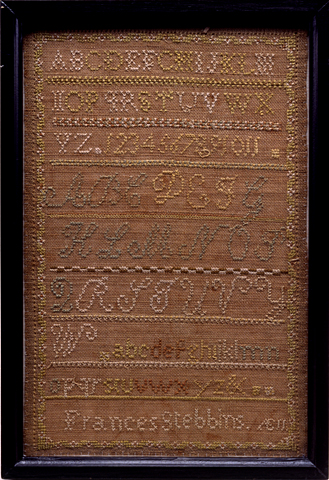 ABCDEFGHIKLM
NOPQRSTUVWX
YZ. 1234567891011
ABCDEFG
HLMNOP
QRSTUVY
W abcdefghiklmn
opqrstuvwxyz&
Frances Stebbins.